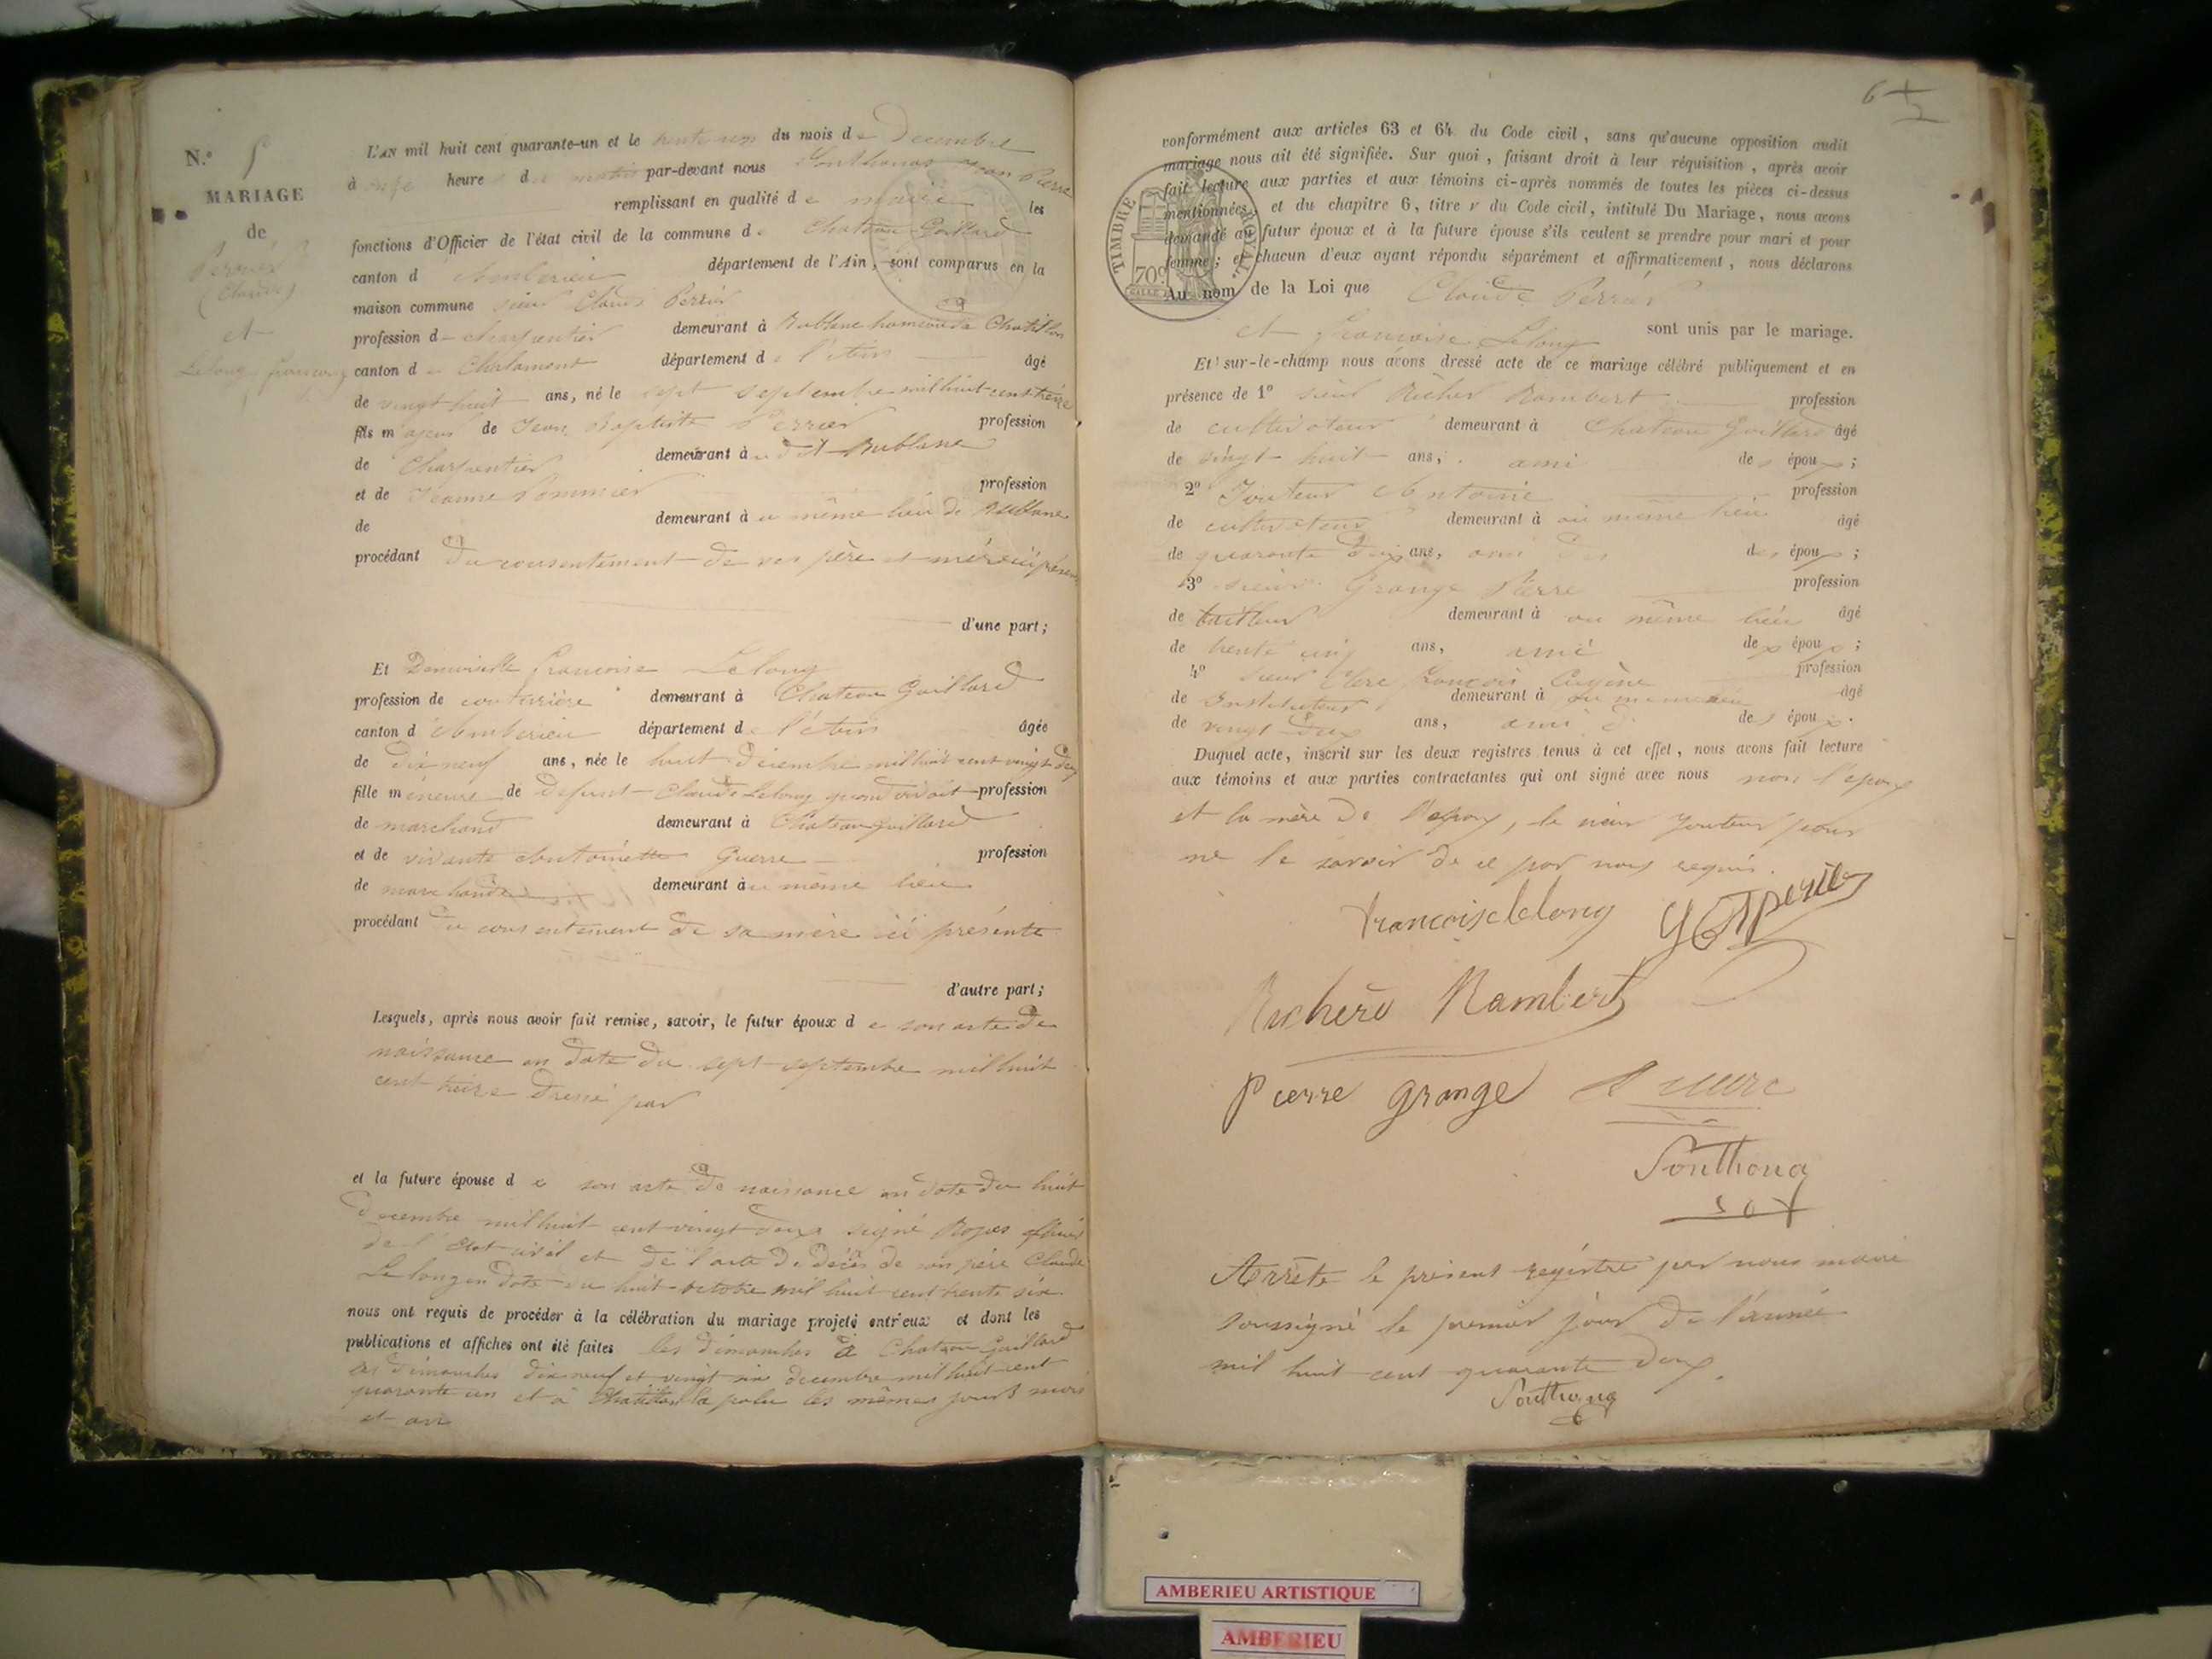 N.º 5
MARIAGE
de
Perrier
(Claude)
et
Lelong françoise
L'AN mil huit cent quarante-un et le trente un du mois de Decembre
à onze heures du matin par-devant nous Jean Pierre
remplissant en qualité de maire les
fonctions d'Officier de l'état civil de la commune de Chateau Gaillard
canton d'Amberieu département de l'Ain, sont comparus en la
maison commune sieur Claude Perrier
profession de charpentier demeurant à Bublane hameau de Chatillon
canton de Chalamont département de l'Ain âgé
de vingt huit ans, né le sept septembre mil huit cent treize
fils majeur de Jean Baptiste Perrier profession
de Charpentier demeurant audit Bublane
et de Jeanne Pommier profession
de demeurant au même lieu de Bublane
procédant du consentement de ses père et mère ici présens
d'une part;
Et Demoiselle françoise Lelong
profession de couturière demeurant à Chateau Gaillard
canton d'Amberieu département de l'Ain âgée
de dix neuf ans, née le huit décembre mil huit cent vingt deux
fille mineure de défunt Claude Lelong quand vivait profession
de marchand demeurant à Chateau Gaillard
et de vivante Antoinette Guerre profession
de marchande demeurant au même lieu
procédant du consentement de sa mère ici présente
d'autre part;
Lesquels, après nous avoir fait remise, savoir, le futur époux de son acte de
naissance en date du sept septembre mil huit
cent treize dressé par
et la future épouse de son acte de naissance en date du huit
decembre mil huit cent vingt deux signé officier
de l'état civil et de l'acte de décès de son père Claude
Lelong en date du huit octobre mil huit cent trente six
nous ont requis de procéder à la célébration du mariage projeté entr'eux et dont les
publications et affiches ont été faites les dimanches à Chateau Gaillard
les dimanches dix neuf et vingt six decembre mil huit cent
quarante un et à Chatillon la palu les mêmes jours mois
et an
6
TIMBRE ROYAL
70c
conformément aux articles 63 et 64 du Code civil, sans qu'aucune opposition audit
mariage nous ait été signifiée. Sur quoi, faisant droit à leur réquisition, après avoir
fait lecture aux parties et aux témoins ci-après nommés de toutes les pièces ci-dessus
mentionnées, et du chapitre 6, titre v du Code civil, intitulé Du Mariage, nous avons
demandé au futur époux et à la future épouse s'ils veulent se prendre pour mari et pour
femme; et chacun d'eux ayant répondu séparément et affirmativement, nous déclarons
Au nom de la Loi que Claude Perrier
et françoise Lelong sont unis par le mariage.
Et sur-le-champ nous avons dressé acte de ce mariage célébré publiquement et en
présence de 1º sieur Rambert profession
de cultivateur demeurant à Chateau Gaillard âgé
de vingt huit ans, ami des époux;
2º Jouteur Antoine profession
de cultivateur demeurant à au même lieu âgé
de quarante deux ans, ami des époux;
3º sieur Grange Pierre profession
de tailleur demeurant à au même lieu âgé
de trente cinq ans, ami des époux;
4º sieur françois Eugène profession
de Instituteur demeurant à au même lieu âgé
de vingt deux ans, ami des époux.
Duquel acte, inscrit sur les deux registres tenus à cet effet, nous avons fait lecture
aux témoins et aux parties contractantes qui ont signé avec nous non l'epoux
et la mère de l'epoux, le sieur Jouteur pour
ne le savoir de ce par nous requis.
francoise lelong
Rambert
Pierre grange
Arrêté le présent registre par nous maire
soussigné le premier jour de l'année
mil huit cent quarante deux.
AMBERIEU ARTISTIQUE
AMBERIEU